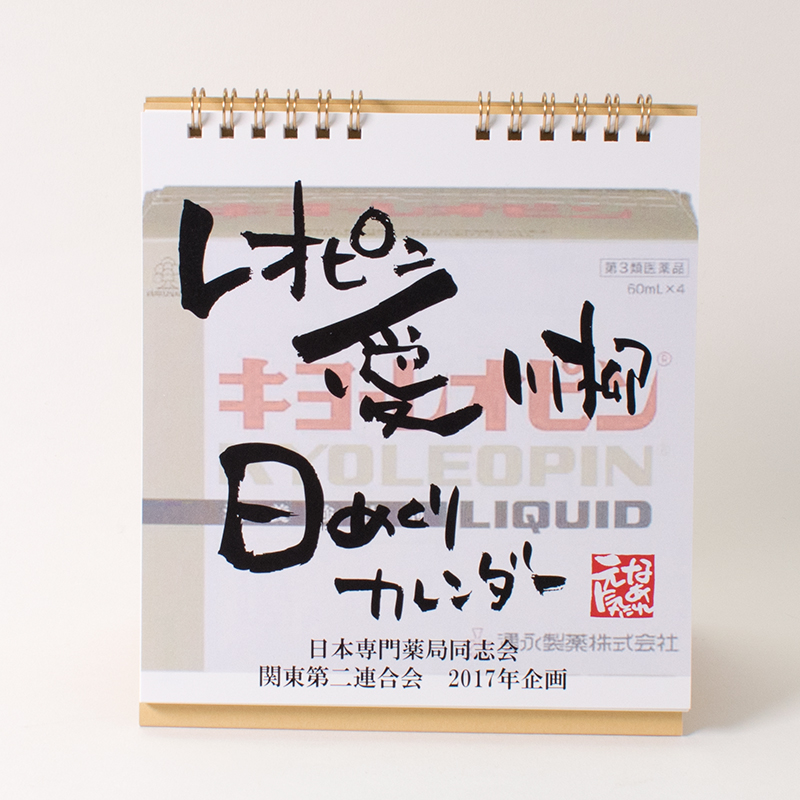 レオピン
愛
川柳
日めくり
カレンダー
第3類医薬品
60mL×4
キヨーレオピン®
KYOLEOPIN®
LIQUID
湧永製薬株式会社
日本専門薬局同志会
関東第二連合会　2017年企画